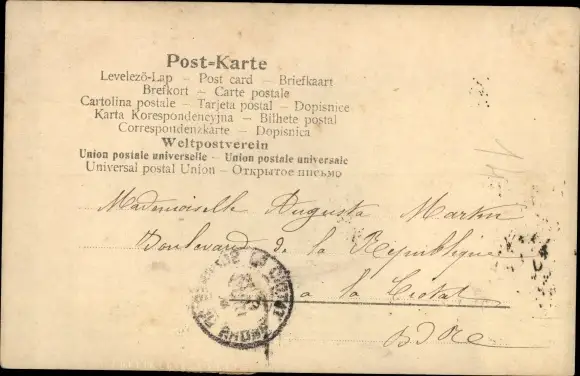 Post-Karte
Levelező-Lap – Post card – Briefkaart
Brefkort – Carte postale
Cartolina postale – Tarjeta postal – Dopisnice
Karta Korespondencyjna – Bilhete postal
Correspondenzkarte – Dopisnica
Weltpostverein
Union postale universelle – Union postale universale
Universal postal Union – Открытое письмо
Mademoiselle Augusta Martin
Boulevard de la République
à la Ciotat
BDR
LA CIOTAT
RHONE